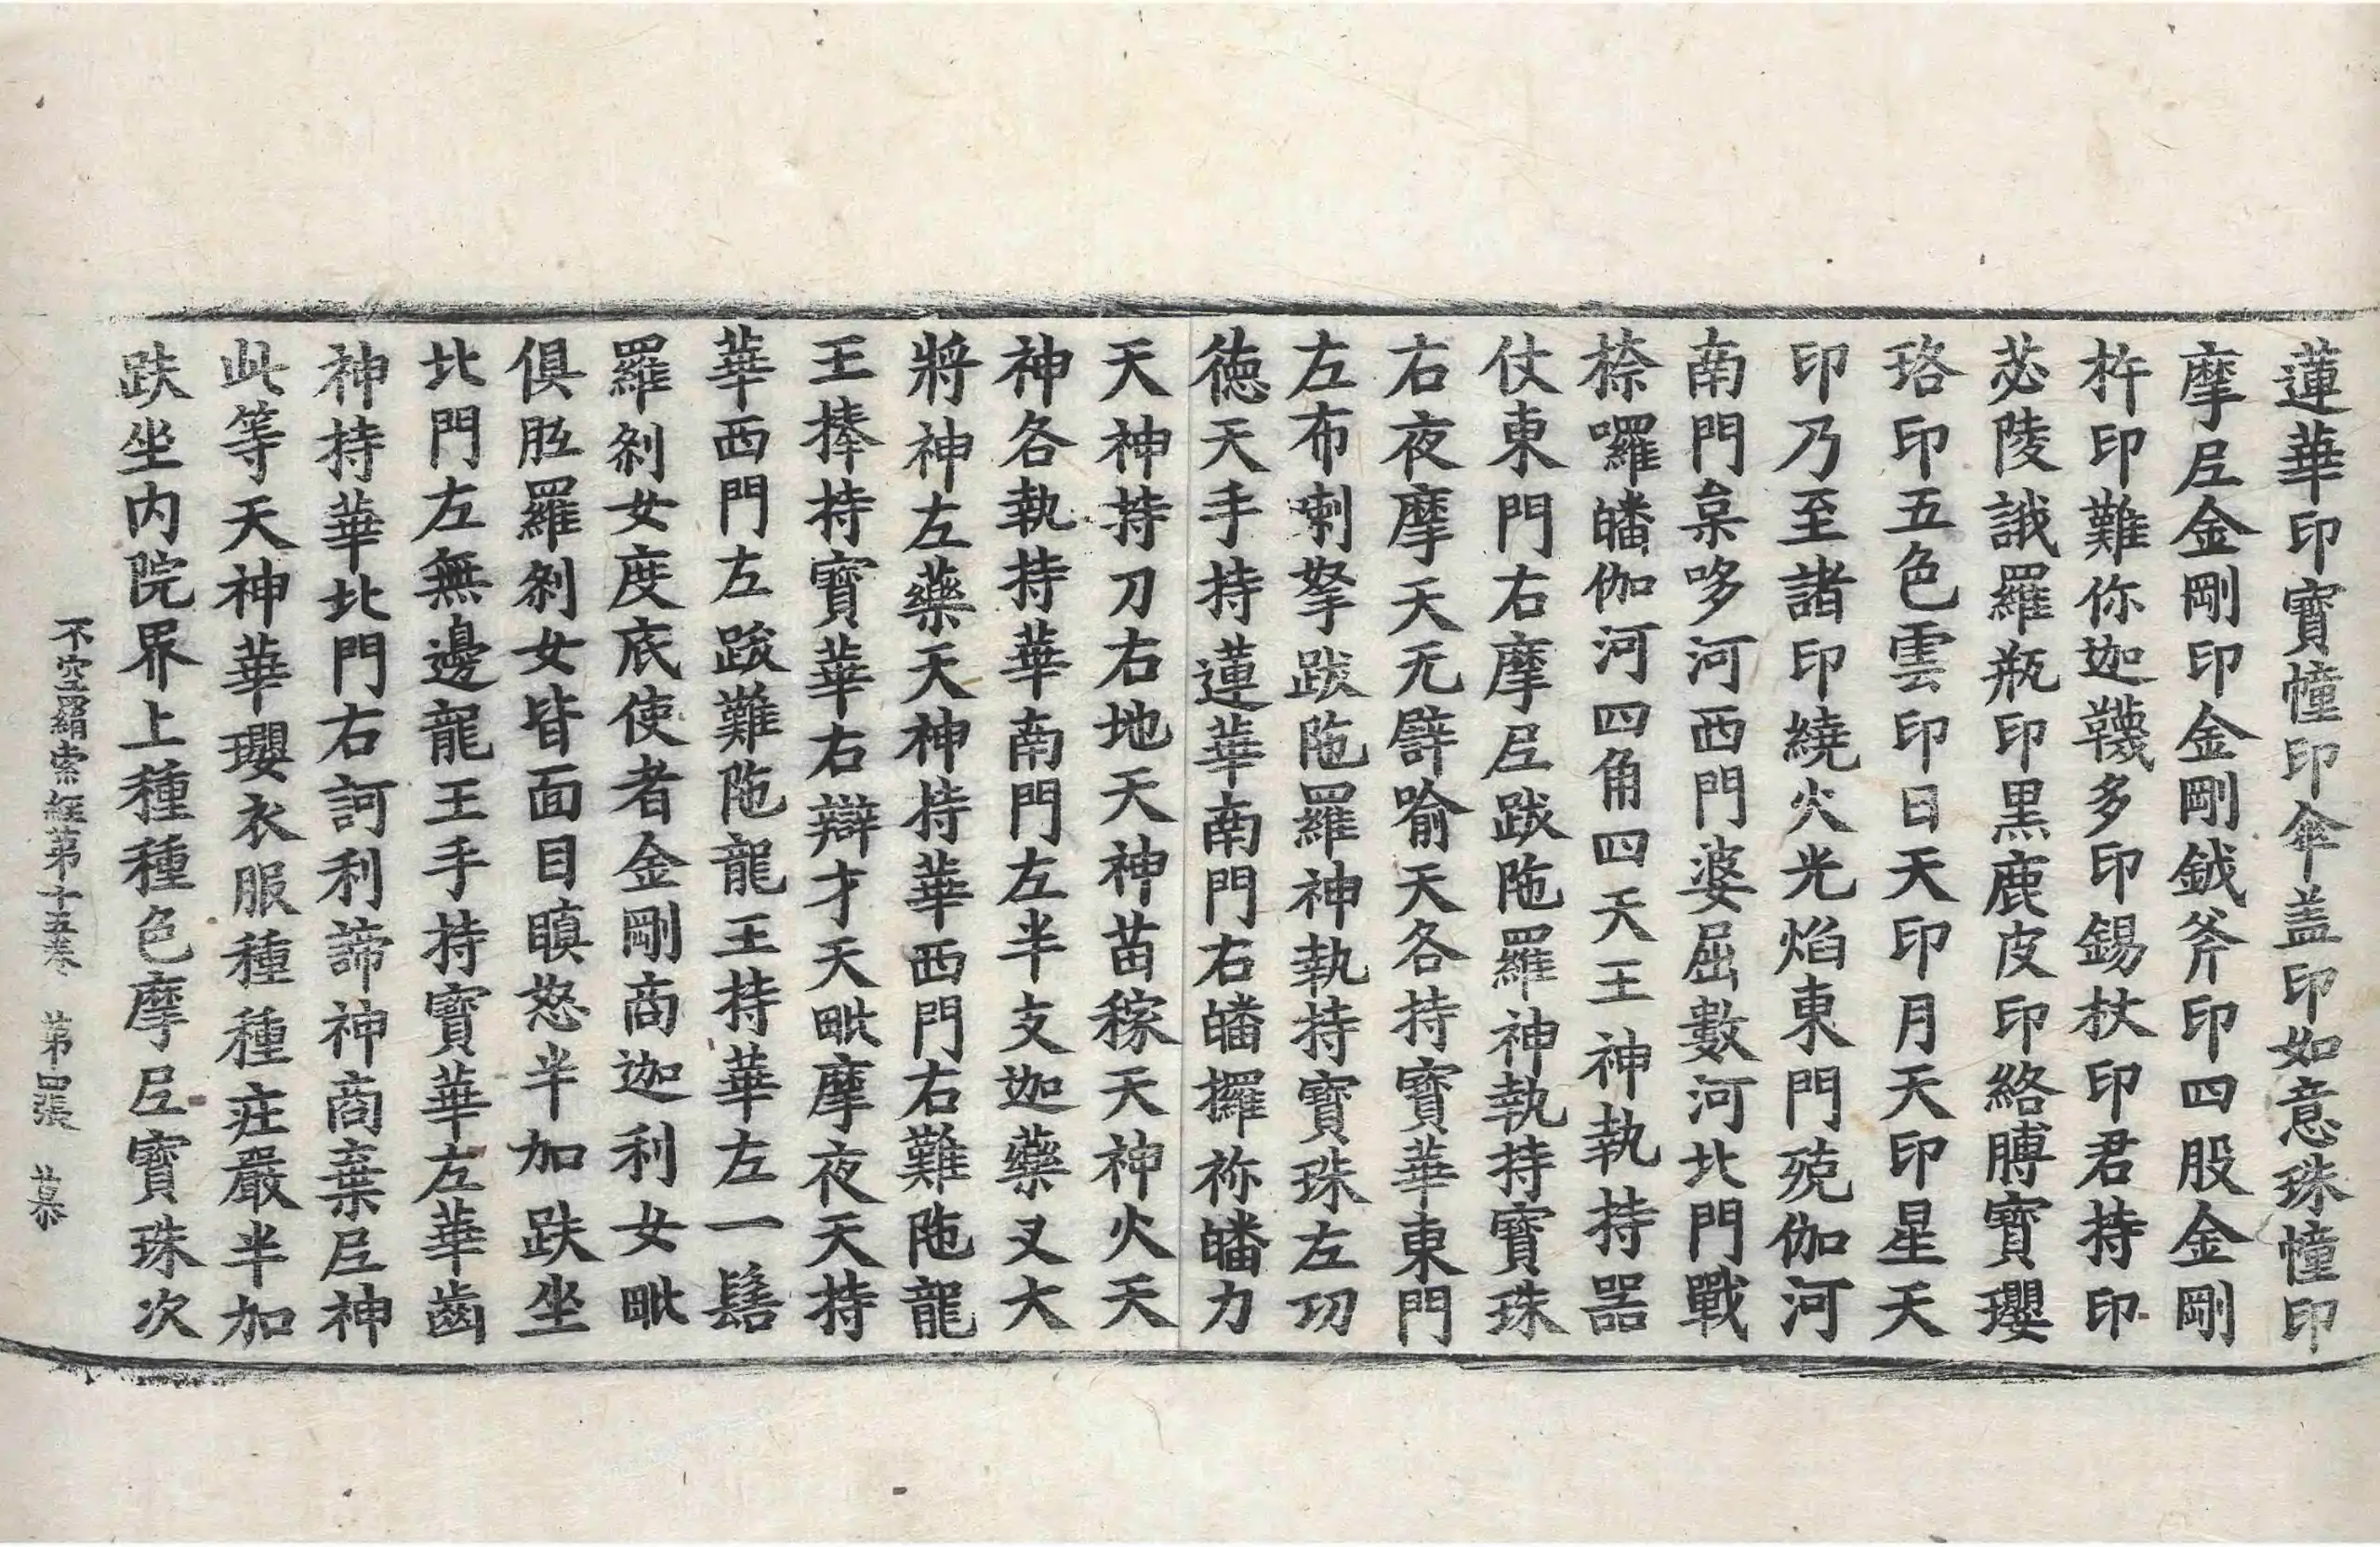 蓮華印寶幢印傘盖印如意珠幢印
摩尼金剛印金剛鉞斧印四股金剛
杵印難你迦韈多印錫杖印君持印
苾陵誐羅瓶印黒鹿皮印絡膊寶瓔
珞印五色雲印日天印月天印星天
印乃至諸印繞火光焰東門殑伽河
南門枲哆河西門婆屈數河北門戰
捺囉皤伽河四角四天王神執持器
仗東門右摩尼跋陁羅神執持寶珠
右夜摩天无𤩹喻天各持寶華東門
左布喇拏跋陁羅神執持寶珠左功
徳天手持蓮華南門右皤攞祢皤力
天神持刀右地天神苗稼天神火天
神各執持華南門左半支迦藥叉大
將神左藥天神持華西門右難陁龍
王捧持寶華右辯才天毗摩夜天持
華西門左跋難陁龍王持華左一髻
羅剎女度底使者金剛商迦利女毗
俱胝羅剎女皆面目瞋怒半加趺坐
北門左無邊龍王手持寶華左華齒
神持華北門右訶利諦神商棄尼神
此等天神華瓔衣服種種莊嚴半加
趺坐内院界上種種色摩尼寶珠次
不空羂索經第十五卷 第四張 慕